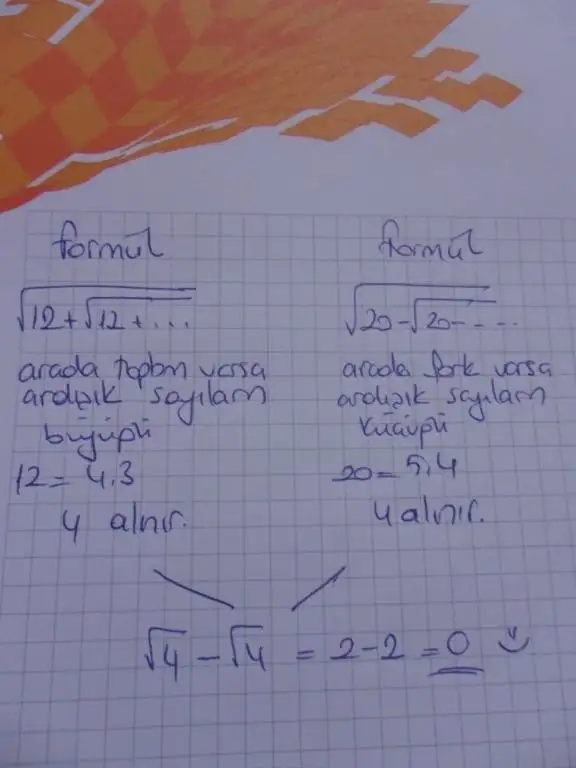 formül
√12+√12+...
arada toplam varsa
ardışık sayıların
büyüğü
12 = 4.3
4 alınır.
formül
√20-√20-....
arada fark varsa
ardışık sayıların
küçüğü
20 = 5.4
4 alınır.
√4 - √4 = 2-2 = 0